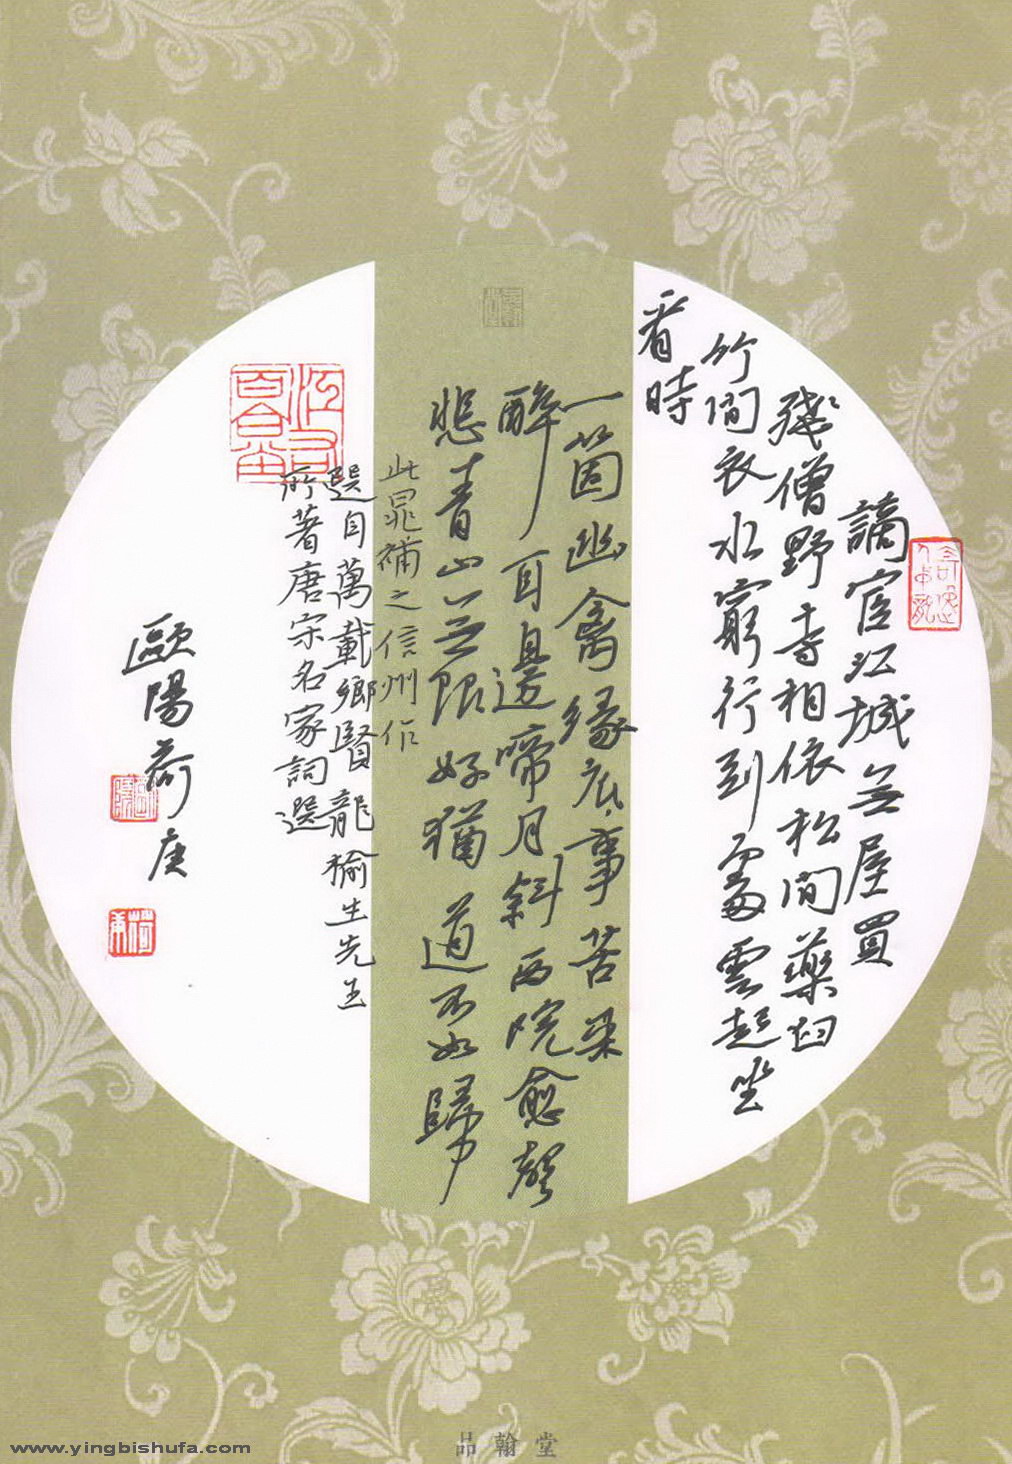 謫宦江城無屋買
殘僧野寺相依松間藥臼
竹間衣水窮行到處雲起坐
看時
一箇幽禽緣底事苦來
醉耳邊啼月斜西院愈聲
悲青山无限好猶道不如歸
此晁補之信州作
選自萬載鄉賢龍榆生先生
所著唐宋名家詞選
歐陽荷庚
品翰堂
www.yingbishufa.com